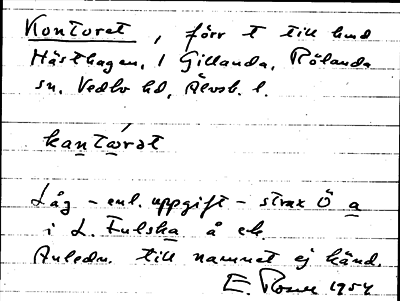 Kontoret, förr t till hmd
Hästhagen, 1 Gillanda, Rölanda
sn, Vedbo hd, Älvsb. l.
kantωrət
Låg - enl. uppgift - strax Ö a
i L. Fulska å ek.
Anledn. till namnet ej känd.
E. 1954